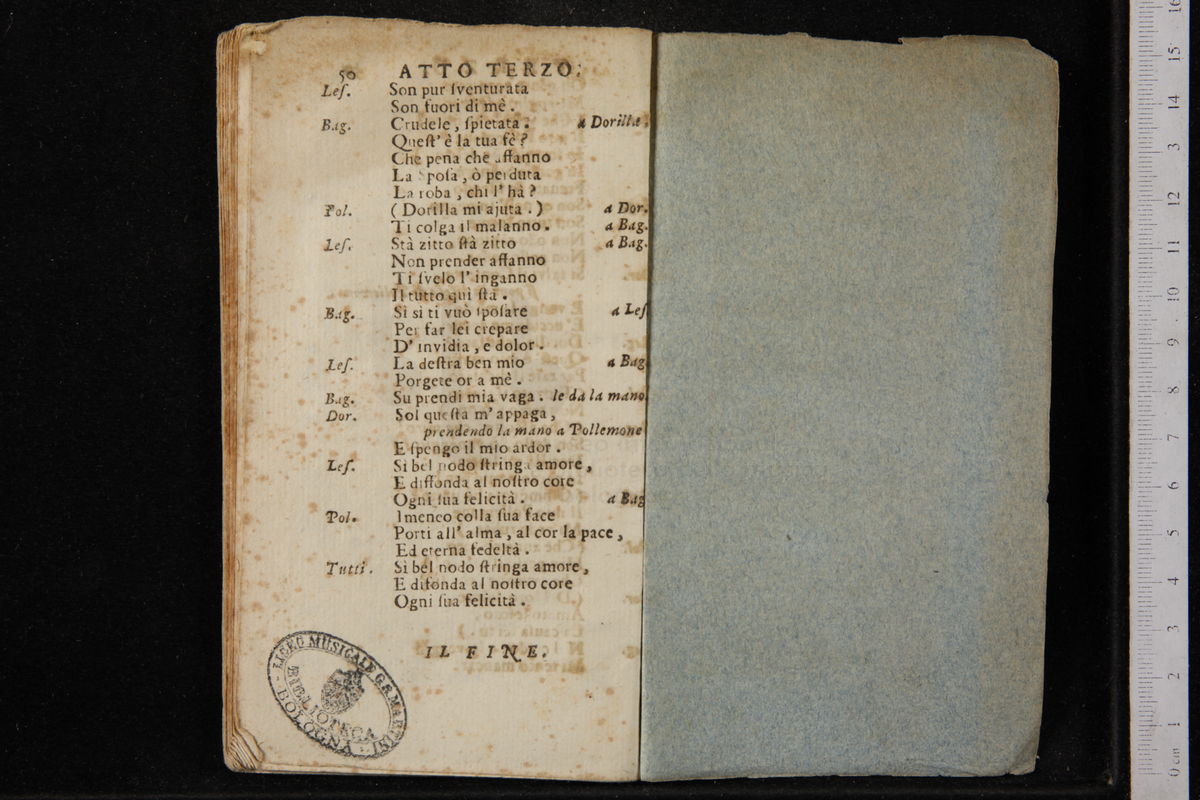 50 ATTO TERZO.
Leſ. Son pur ſventurata
Son fuori di mè .
Bag. Crudele , ſpietata . a Dorilla .
Queſt' è la tua fè ?
Che pena che affanno
La Spoſa , ò perduta
La roba , chi l' hà ?
Pol. ( Dorilla mi ajuta . ) a Dor.
Ti colga il malanno . a Bag.
Leſ. Stà zitto ſtà zitto a Bag.
Non prender affanno
Ti ſvelo l' inganno
Il tutto quì ſta .
Bag. Sì sì ti vuò ſpoſare a Leſ
Per far lei crepare
D' invidia , e dolor .
Leſ. La deſtra ben mio a Bag
Porgete or a mè .
Bag. Su prendi mia vaga . le da la mano
Dor. Sol queſta m' appaga ,
prendendo la mano a Pollemone
E ſpengo il mio ardor .
Leſ. Sì bel nodo ſtringa amore ,
E diffonda al noſtro core
Ogni ſua felicità . a Bag
Pol. Imeneo colla ſua face
Porti all' alma , al cor la pace ,
Ed eterna fedeltà .
Tutti . Sì bel nodo ſtringa amore ,
E difonda al noſtro core
Ogni ſua felicità .
IL FINE.
LICEO MUSICALE G.B. MARTINI
BIBLIOTECA
BOLOGNA
0 cm 1 2 3 4 5 6 7 8 9 10 11 12 13 14 15 16